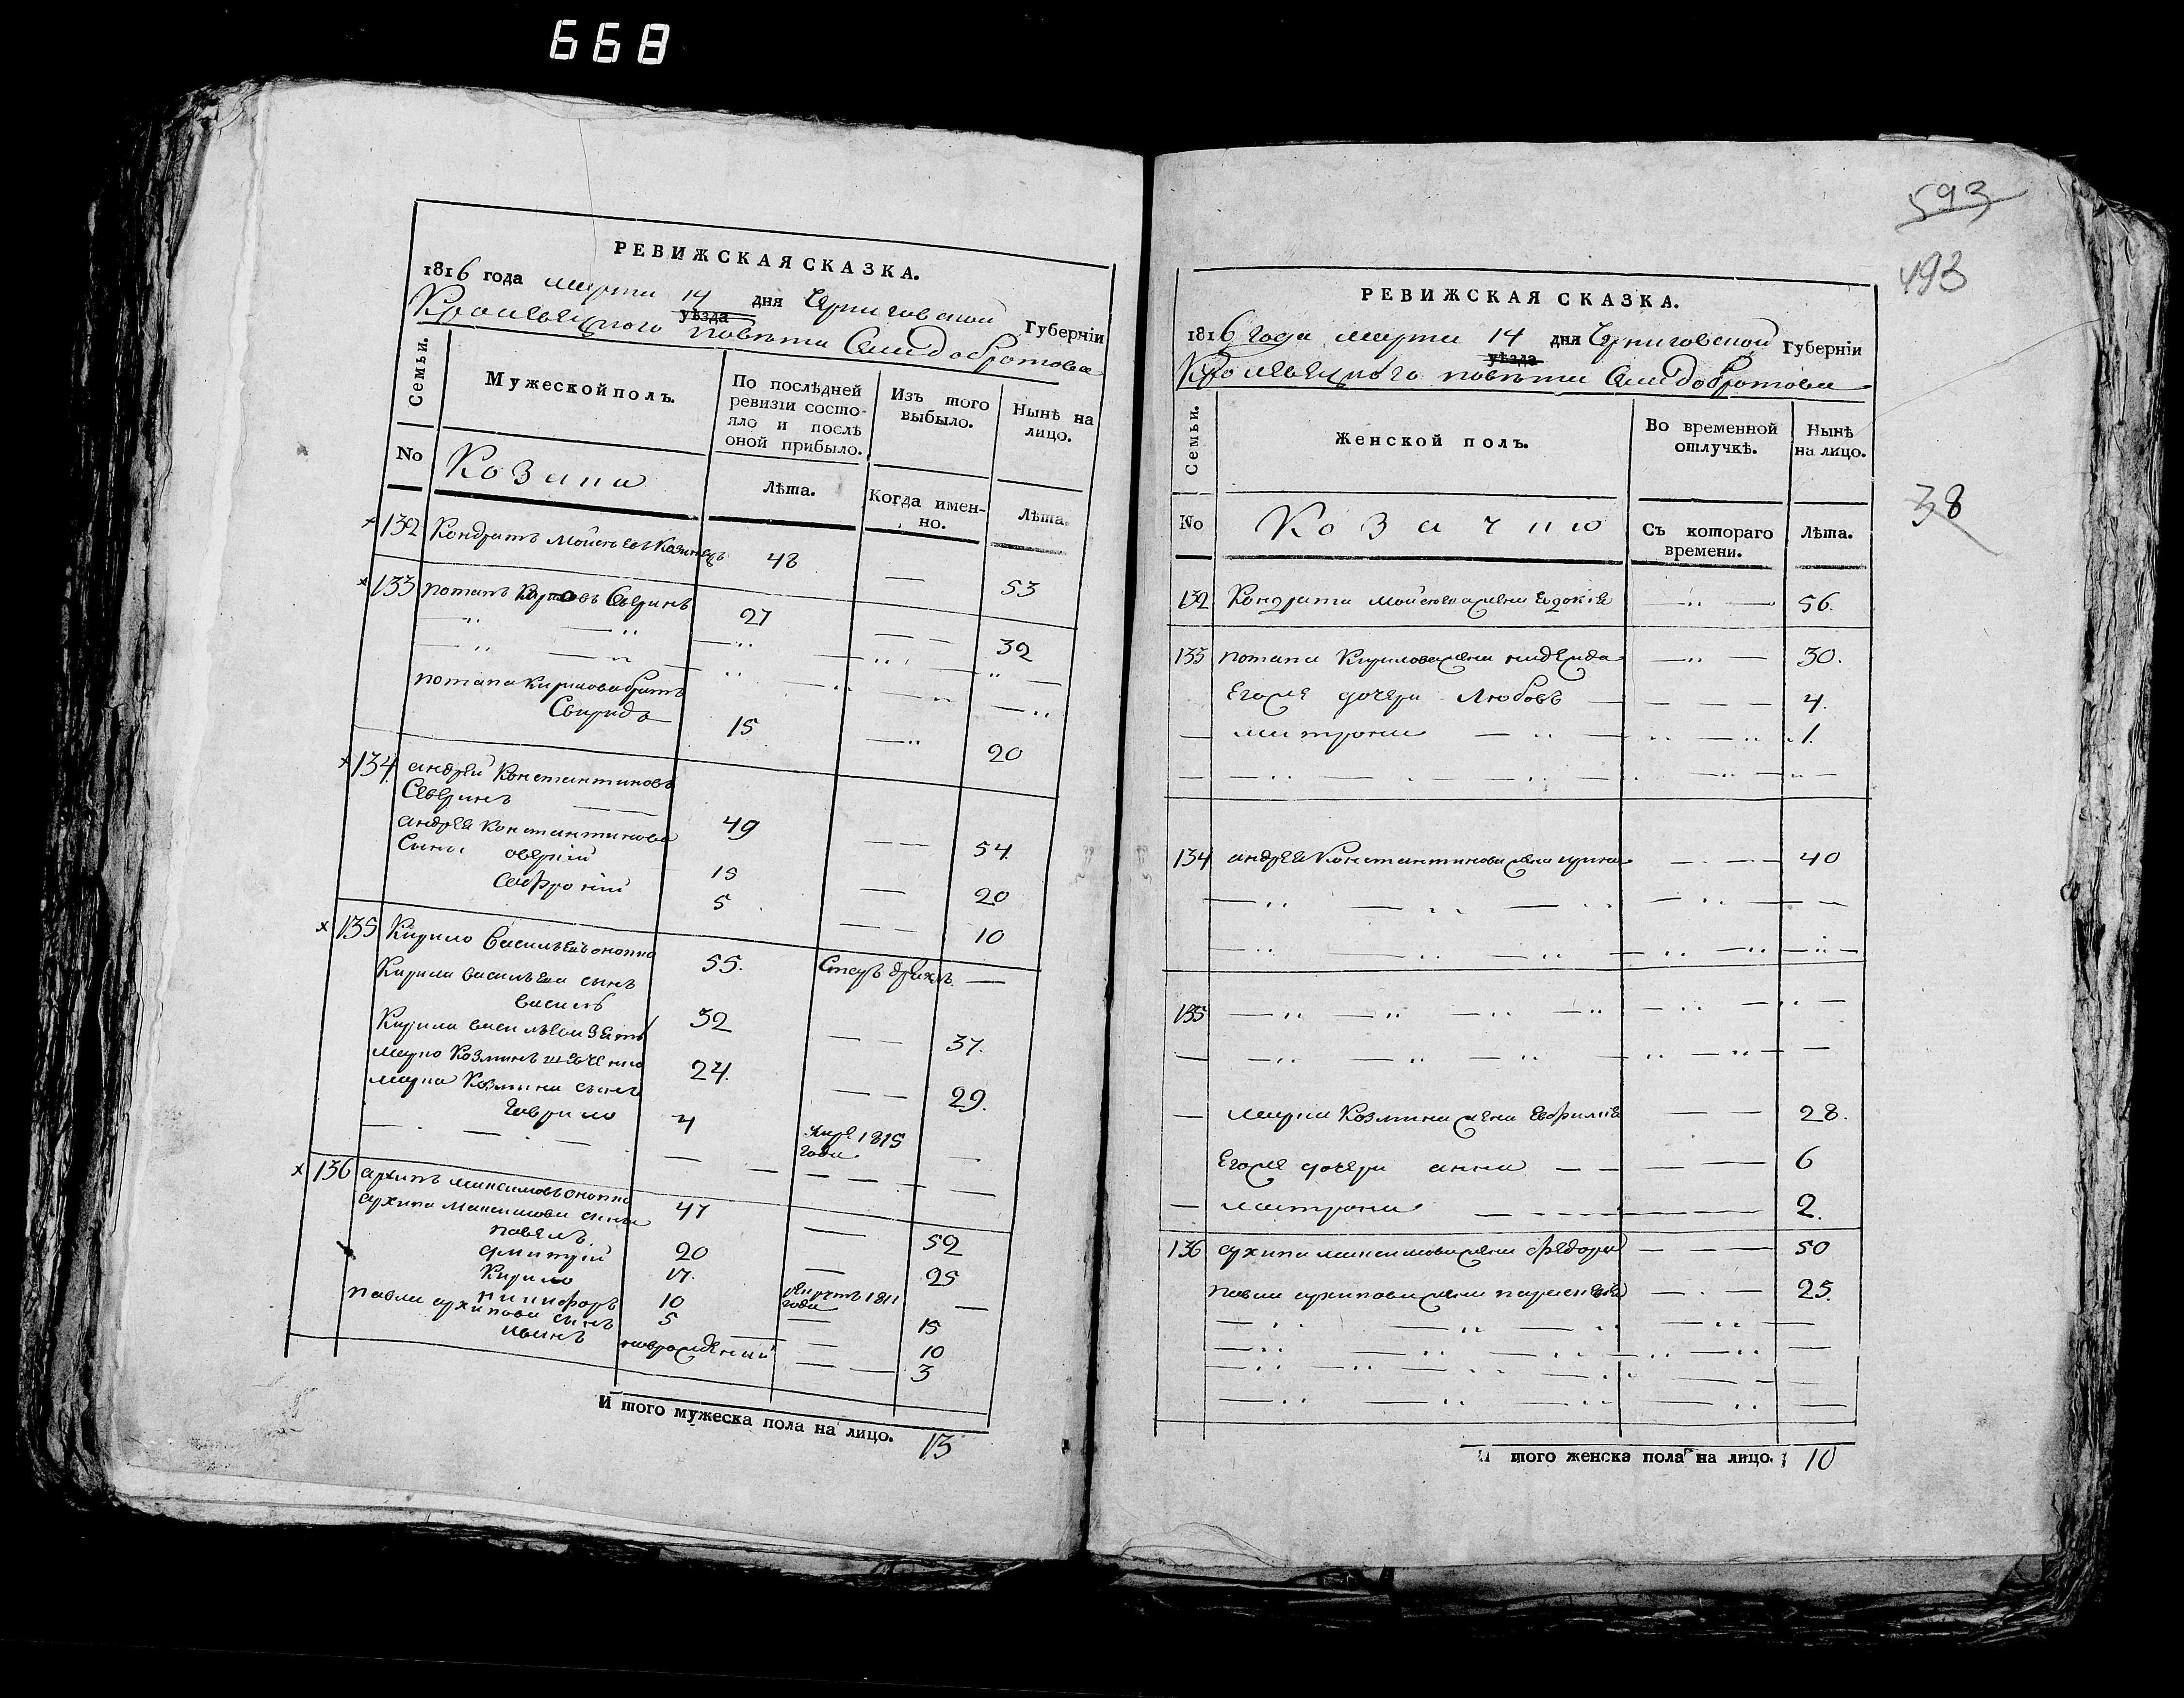 668
РЕВИЖСКАЯ СКАЗКА.
1816 года марта 14 дня Черниговской Губернїи
Кролевецкого уѣзда повѣта
Семьи.
Мужеской полъ.
По послѣдней ревизїи состояло и послѣ оной прибыло.
Изъ того выбыло.
Нынѣ на лицо.
No
Козаки
Лѣта.
Когда именно.
Лѣта.
132 Кондратъ Мойсѣевъ 48 — 53
133 потапъ Кириловъ Северинъ 27 — — 32
потапа кирилова братъ
Свиридъ 15 — 20
134 андрей Константиновъ
Северинъ — 49 — — 54
андрея константинова
Сыны аверкїй 15 — 20
Сафронїй 5 — — 10
135 Кирило Васильевъ 55. —
Кирила васильева сынъ
василь 32 — — 37.
Кирила васильева зять
марко Козминъ шевченко 24. — — 29.
марка Козмина сынъ
Гаврило 4 умре 1815 года —
136 архипъ максимовъ 47 — 52
архипа максимова сыны
павелъ 20 — 25
дмитрїй 17. 1811 года —
Кирило 10 — 15
никифоръ 5 — 10
павла архипова сынъ
новорожденный — — 3
И того мужеска пола на лицо. 13
593
493
38
РЕВИЖСКАЯ СКАЗКА.
1816 года марта 14 дня Черниговской Губернїи
Кролевецкого уѣзда повѣта
Семьи.
Женской полъ.
Во временной отлучкѣ.
Нынѣ на лицо.
No
Козачки
Съ котораго времени.
Лѣта.
132 Кондрата Мойсѣева жена Евдокїя — 56.
133 потапа Кирилова жена надежда — 30.
Егоже дочери Любовь — 4.
— матрона — 1.
134 андрея Константинова жена ирина — 40
135
— марка Козмина жена Евфимїя — 28.
Егоже дочери анна — 6
— матрона — 2.
136 архипа максимова жена федора — 50
павла архипова жена параскевїя — 25.
И того женска пола на лицо. 10